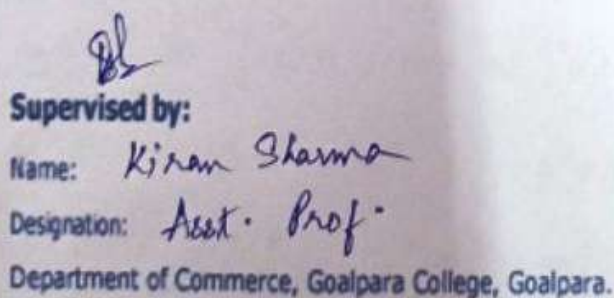 Supervised by:
Name: Kiran Sharma
Designation: Asst. Prof.
Department of Commerce, Goalpara College, Goalpara.